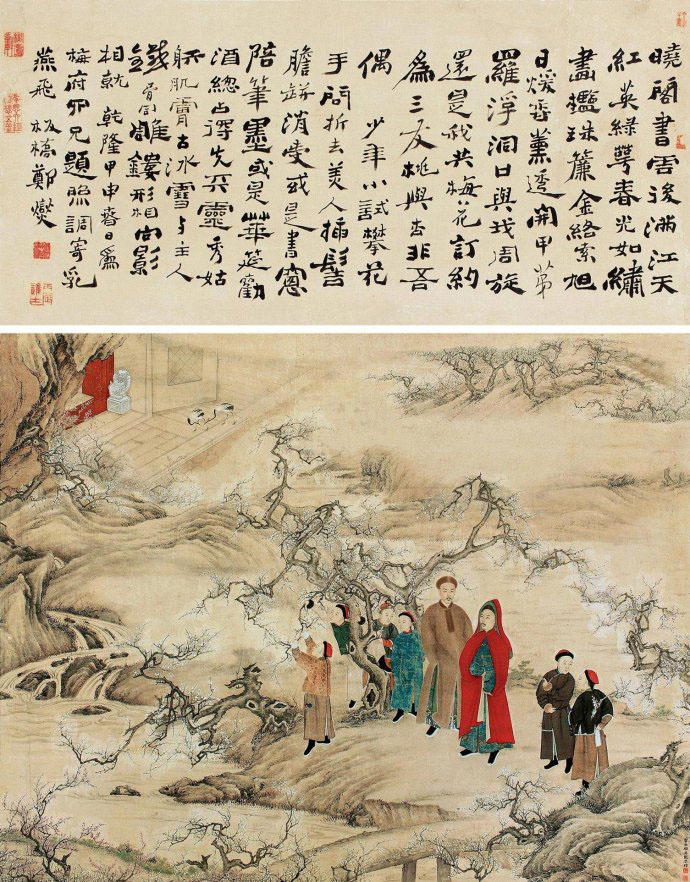 曉閣書雲後滿江天
紅英綠萼春光如繡
畫檻珠簾金絡索旭
日煖香薰透開甲第
羅浮洞口與我周旋
還是我共梅花訂約
為三友桃與杏非吾
偶 少年小試攀花
手閒折去美人插髻
膽缾消受或是書窗
陪筆墨或是華筵勸
酒總占得先天靈秀姑
射肌膚古冰雪與主人
鐵骨同雕鏤形相向影
相就 乾隆甲申春日為
梅府卯兄題照調寄乳
燕飛 板橋鄭燮